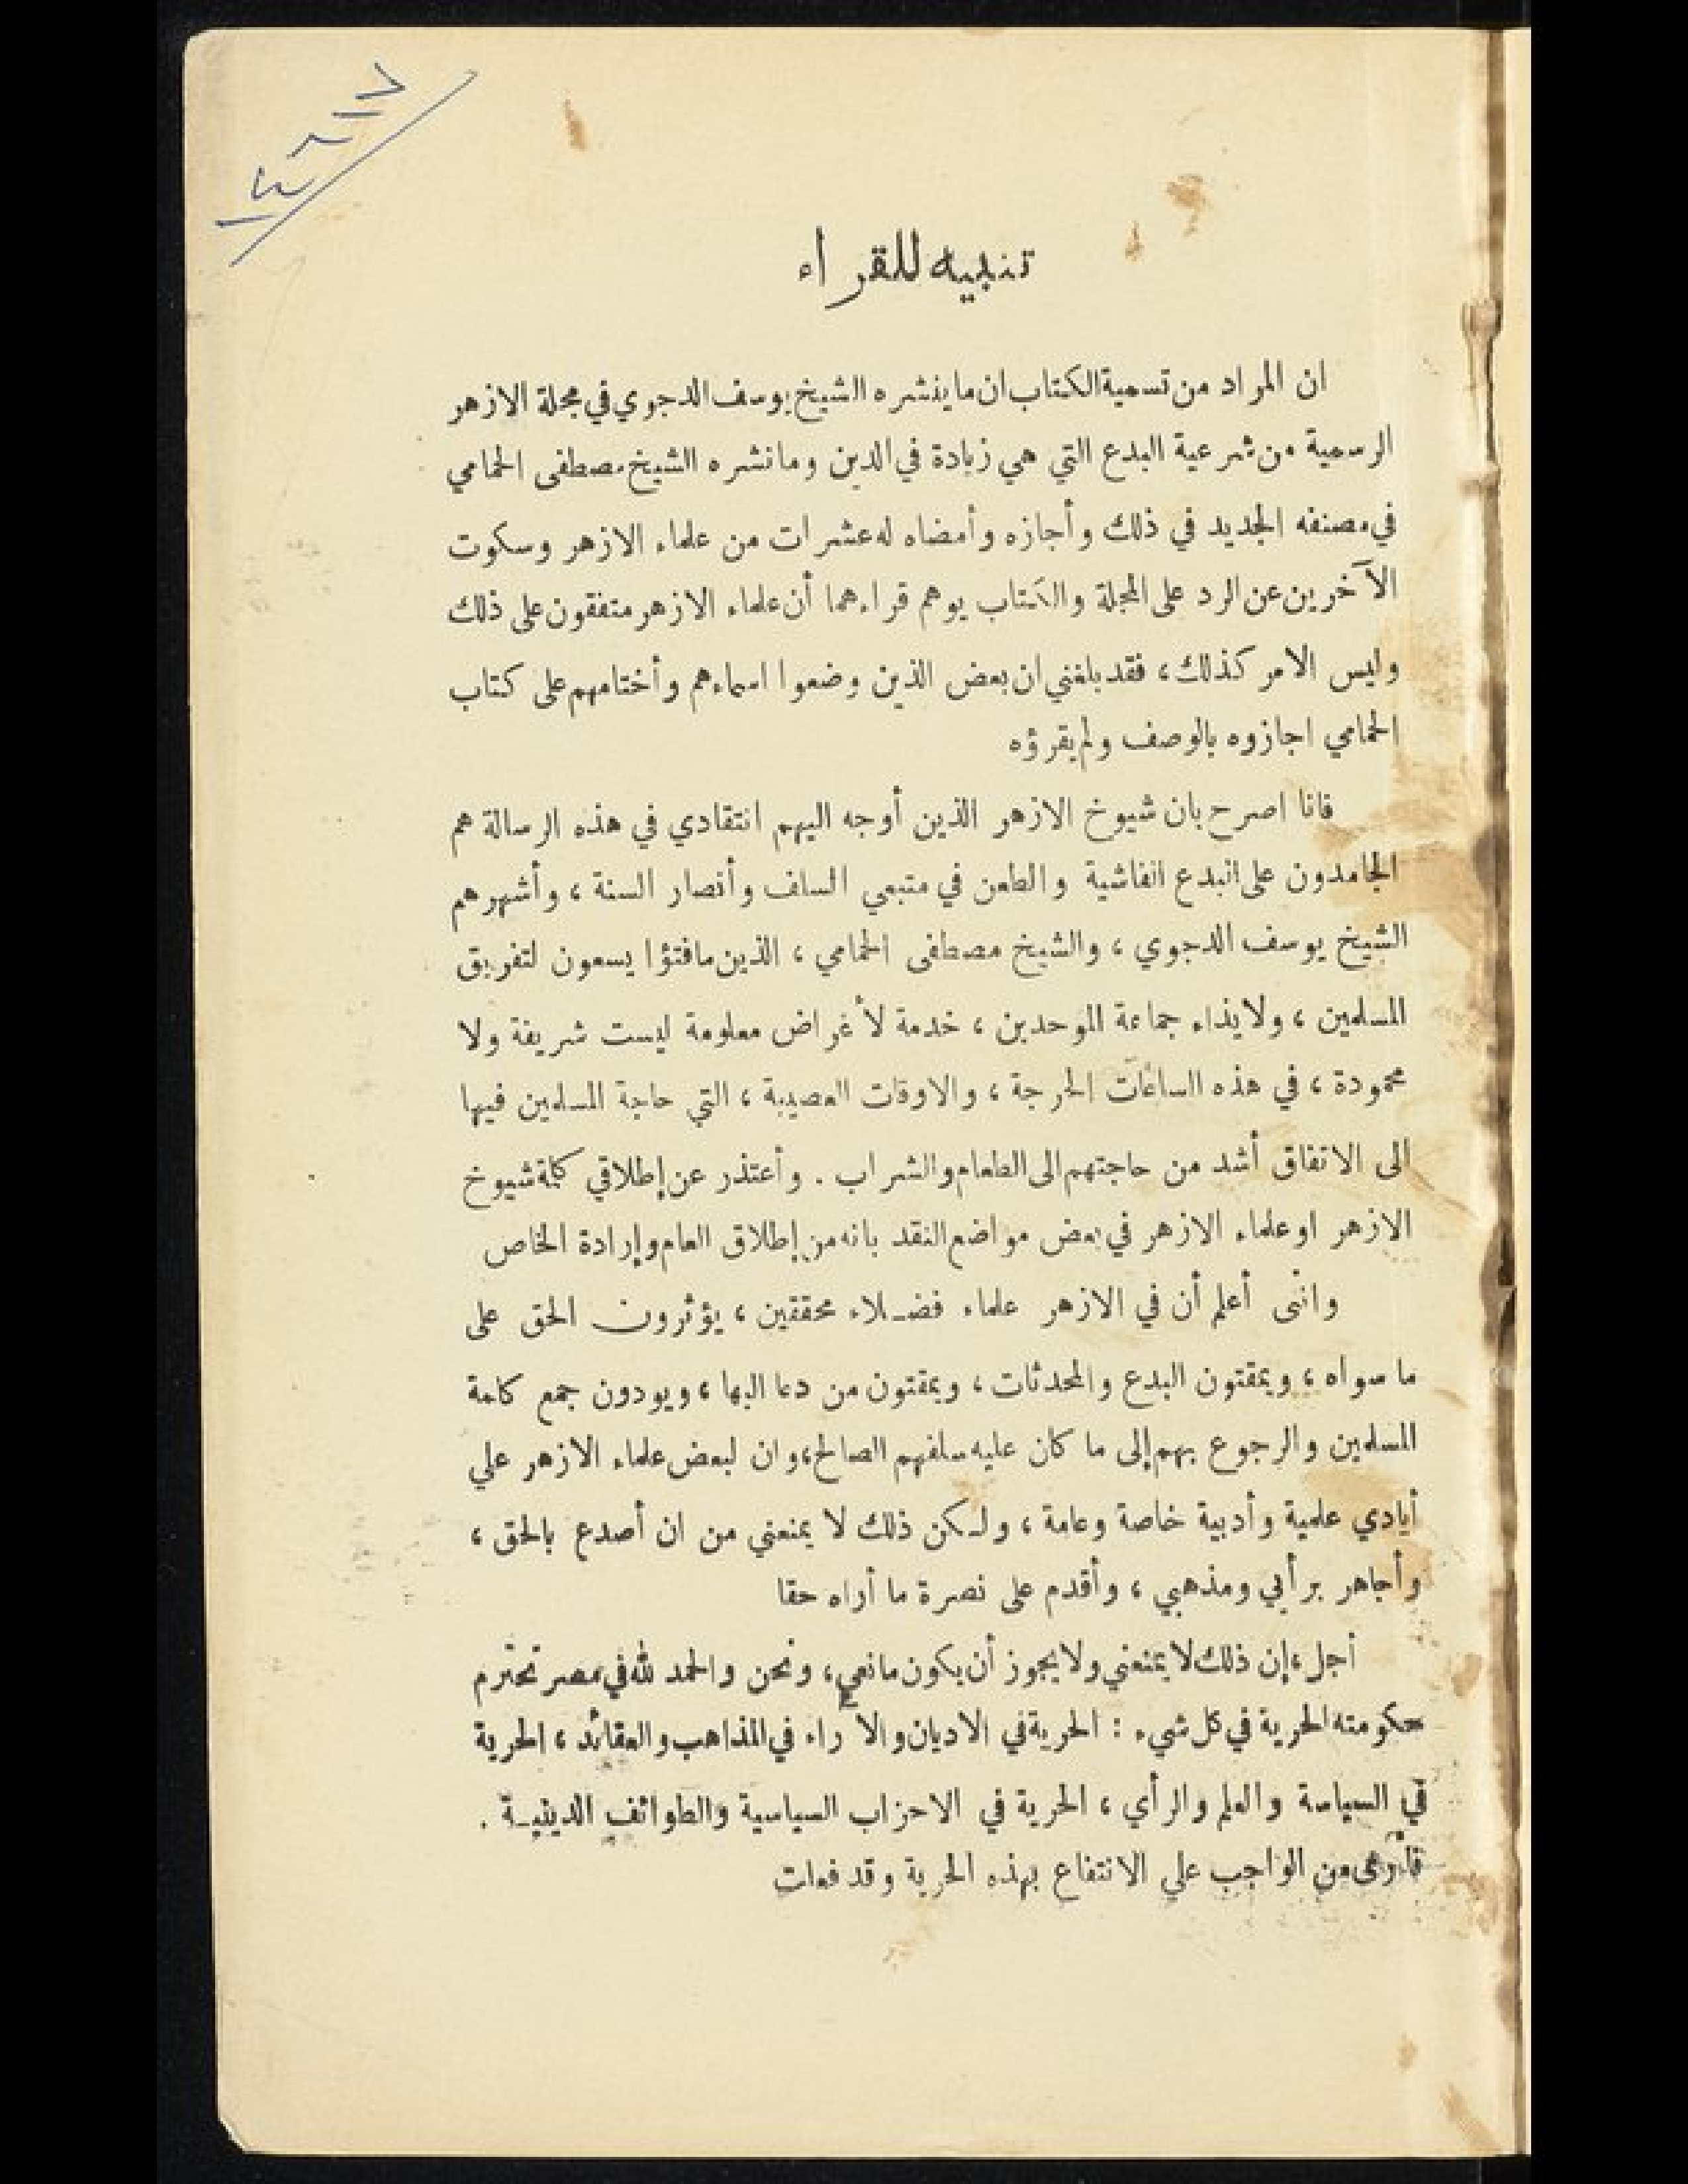 تنبيه للقراء
ان المراد من تسمية الكتاب ان ما ينشره الشيخ يوسف الدجوي في مجلة الازهر
الرسمية من شرعية البدع التي هي زيادة في الدين وما نشره الشيخ مصطفى الحمامي
في مصنفه الجديد في ذلك وأجازه وأمضاه له عشرات من علماء الازهر وسكوت
الآخرين عن الرد على المجلة والكتاب يوهم قراءهما أن علماء الازهر متفقون على ذلك
وليس الامر كذلك، فقد بلغني ان بعض الذين وضعوا اسماءهم وأختامهم على كتاب
الحمامي اجازوه بالوصف ولم يقرؤه
فانا اصرح بان شيوخ الازهر الذين أوجه اليهم انتقادي في هذه الرسالة هم
الجامدون على البدع الفاشية والطعن في متبعي السلف وأنصار السنة، وأشهرهم
الشيخ يوسف الدجوي، والشيخ مصطفى الحمامي، الذين ما فتؤا يسعون لتفريق
المسلمين، ولايذاء جماعة الموحدين، خدمة لأغراض معلومة ليست شريفة ولا
محمودة، في هذه الساعات الحرجة، والاوقات العصيبة، التي حاجة المسلمين فيها
الى الاتفاق أشد من حاجتهم الى الطعام والشراب. وأعتذر عن إطلاقي كلمة شيوخ
الازهر او علماء الازهر في بعض مواضع النقد بانه من إطلاق العام وإرادة الخاص
وانى أعلم أن في الازهر علماء فضلاء محققين، يؤثرون الحق على
ما سواه، ويمقتون البدع والمحدثات، ويمقتون من دعا اليها، ويودون جمع كلمة
المسلمين والرجوع بهم إلى ما كان عليه سلفهم الصالح، وان لبعض علماء الازهر علي
أيادي علمية وأدبية خاصة وعامة، ولكن ذلك لا يمنعني من ان أصدع بالحق،
وأجاهر برأيي ومذهبي، وأقدم على نصرة ما أراه حقا
أجل، إن ذلك لا يمنعني ولا يجوز أن يكون مانعي، ونحن والحمد لله في مصر تحترم
حكومته الحرية في كل شيء: الحرية في الاديان والآراء في المذاهب والعقائد، الحرية
في السياسة والعلم والرأي، الحرية في الاحزاب السياسية والطوائف الدينية.
من الواجب علي الانتفاع بهذه الحرية وقد فعلت